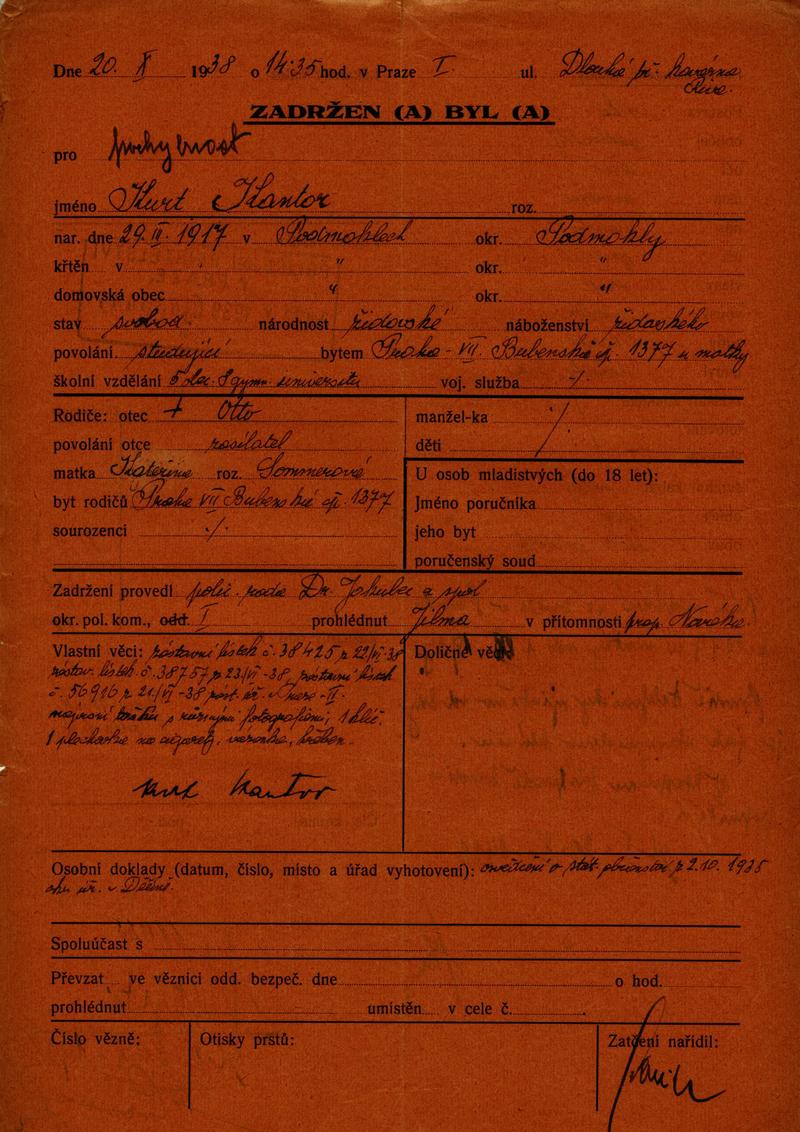 Dne 20. X 1938 o 14·35 hod. v Praze I. ul. Dlouhá
ZADRŽEN (A) BYL (A)
pro pochybnost
jméno Kurt Kantor roz.
nar. dne 29. III. 1917 v Podmoklech okr. Podmokly
křtěn v " okr. "
domovská obec " okr. "
stav svobod. národnost židovské náboženství židovského
povolání studující bytem Praha - VII. Bubenská čp. 1377 u matky
školní vzdělání 5 gymn. universitu voj. služba -/-
Rodiče: otec + Otto
povolání otce zasilatel
matka Kateřina roz. Sommerová
byt rodičů Praha VII Bubenská čp. 1377
sourozenci -/-
manžel-ka /
děti /
U osob mladistvých (do 18 let):
Jméno poručníka
jeho byt
poručenský soud
Zadržení provedl polic. rada Dr. a spol
okr. pol. kom., odd. I prohlédnut Jilma v přítomnosti Nováka
Vlastní věci: zástavní lístek č. 38425 z 22/VI-38
zástav. lístek č. 38757 z 23/VI-38, zástavní lístek
č. 56916 z 21/VI-38
s různými fotografiemi, 1 klíč,
1 na cigarety, hřeben.
Kurt Kantor
Doličné věci
Osobní doklady (datum, číslo, místo a úřad vyhotovení): osvědčení o stát. občanství z 2.10. 1935
okr. úř. v Děčíně.
Spoluúčast s
Převzat ve věznici odd. bezpeč. dne o hod.
prohlédnut umístěn v cele č.
Číslo vězně:
Otisky prstů:
Zatčení nařídil: